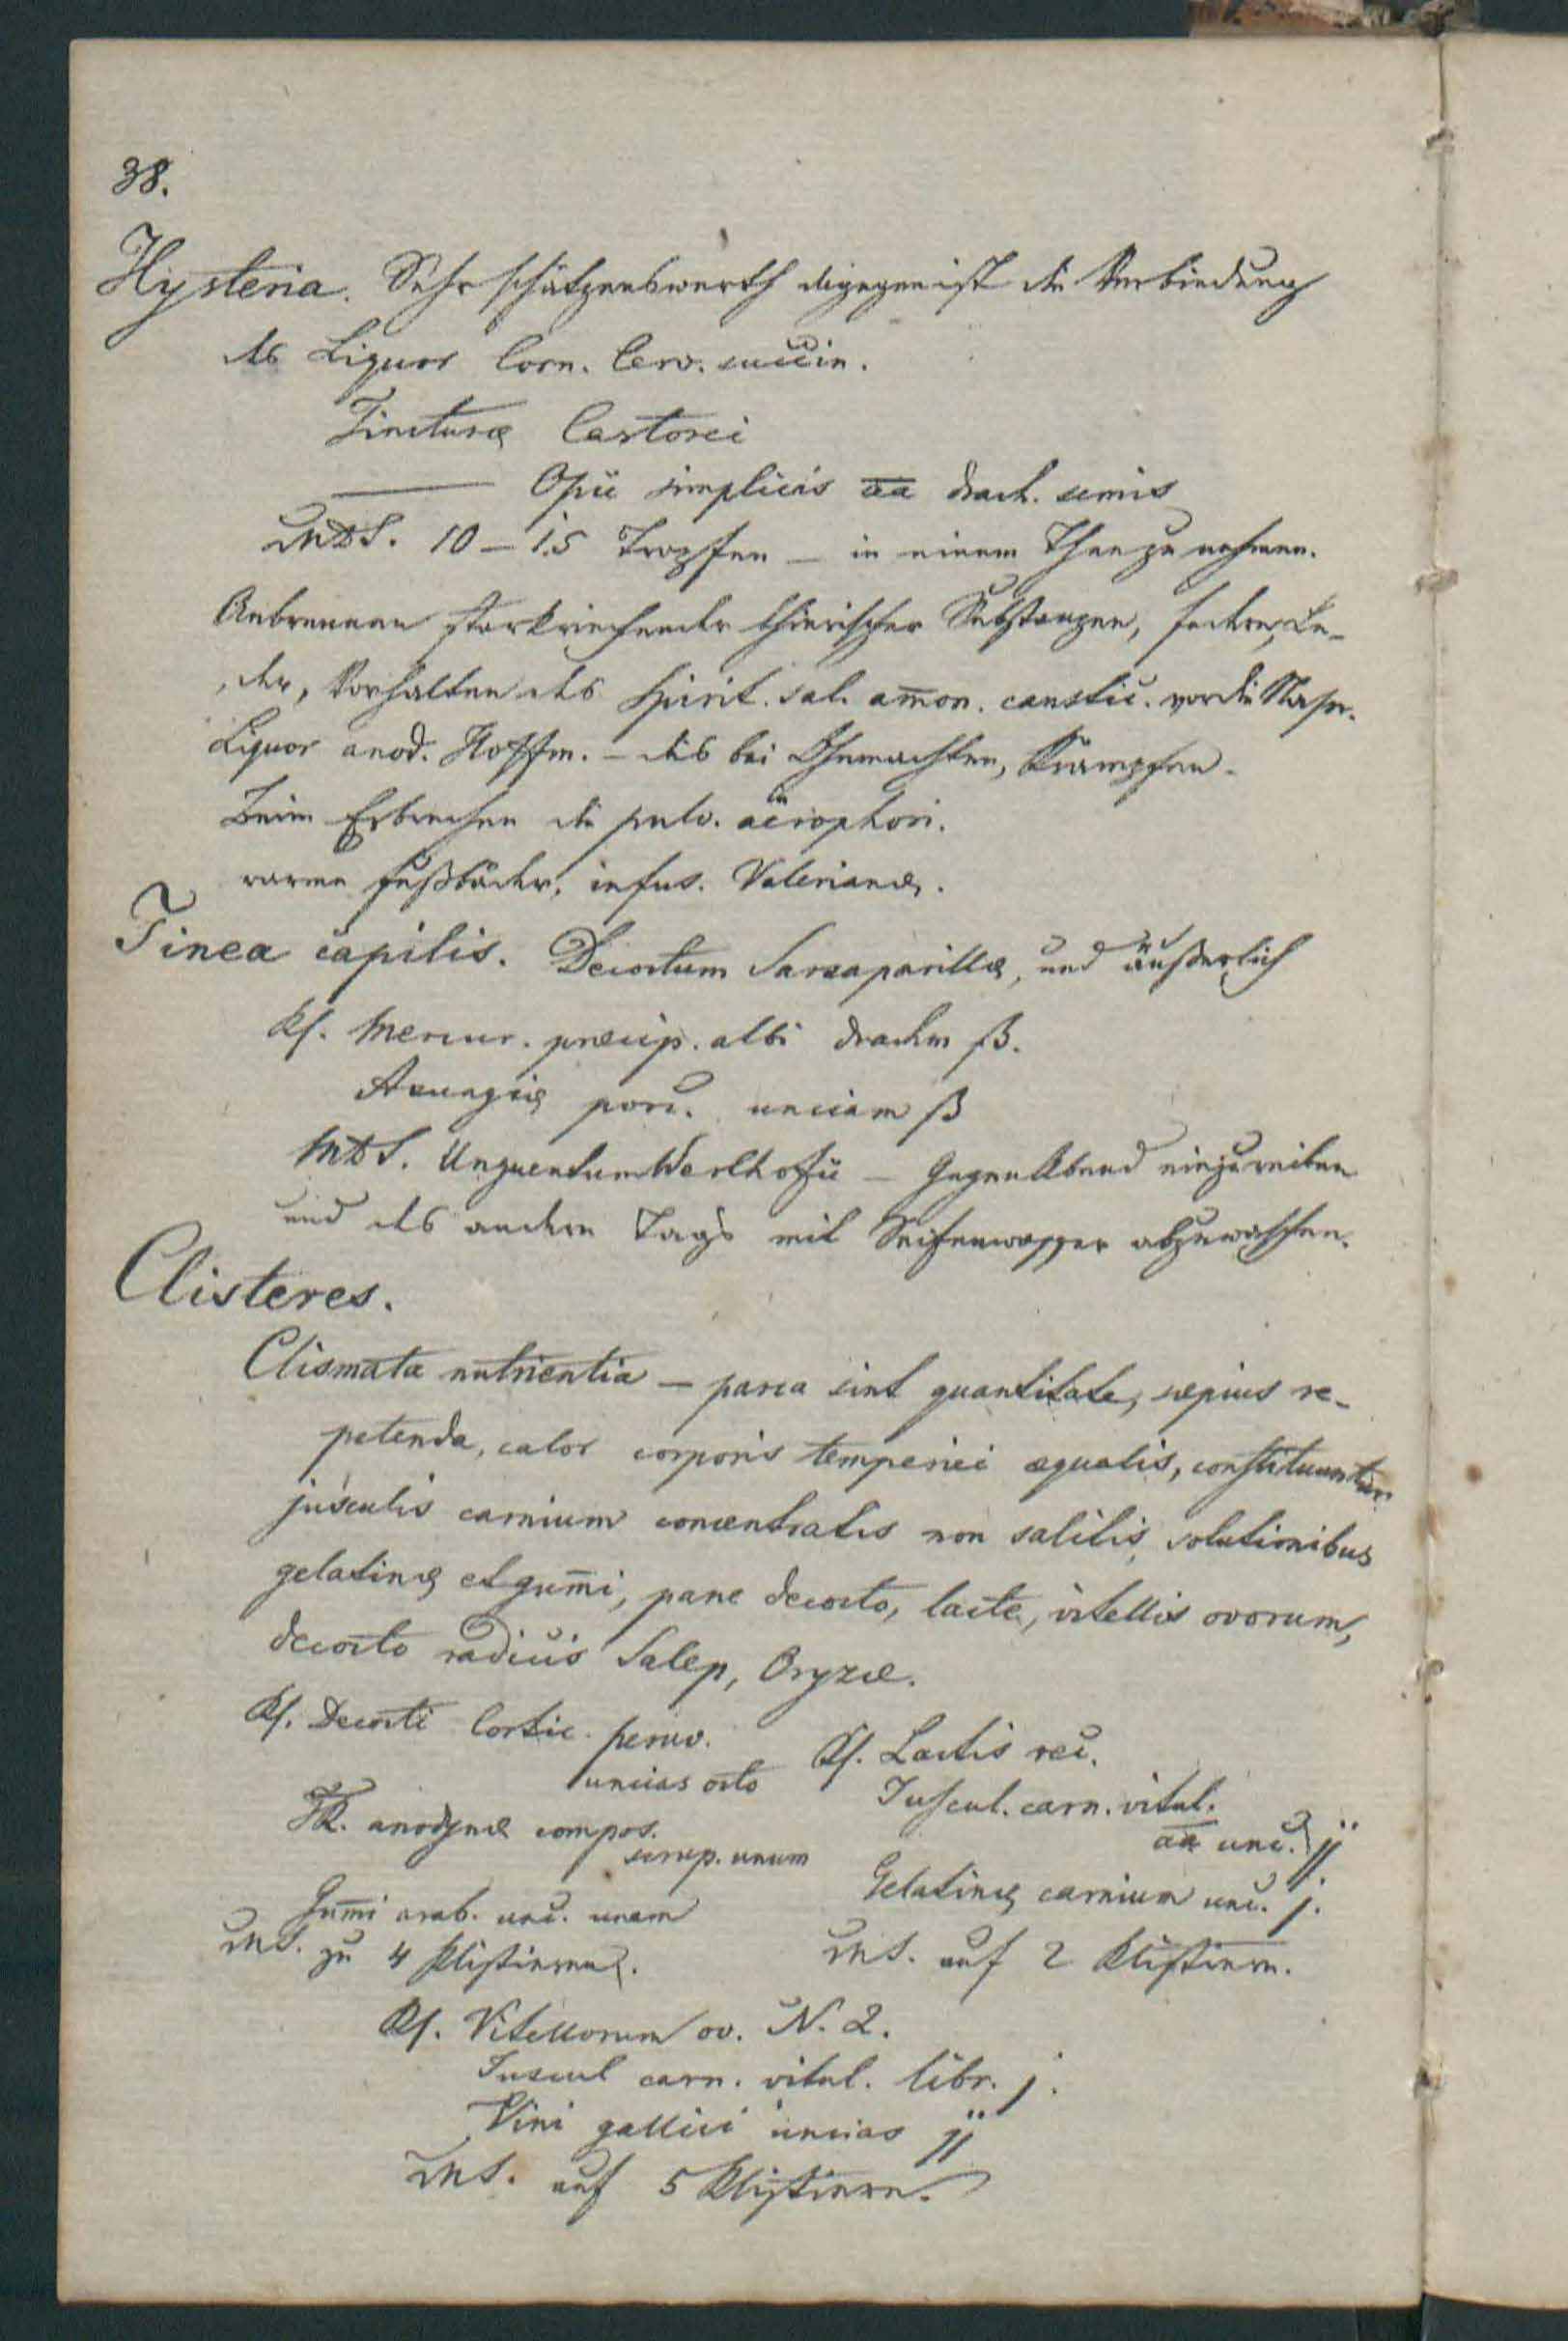 38.
Hysteria. Sehr schätzenswerth dagegen ist die Verbindung
des Liquor Corn. Cerv. succin.
Tincturæ Castorei
——— Opii simplicis a͞a drach. semis
MDS. 10–15 Tropfen – in einem Thee zu nehmen.
Anbrennen starkriechender thierischer Substanzen, Federn, Le-
der, Vorhalten des Spirit. sal. am̅on. caustic. vor die Nase.
Liquor anod. Hoffm. – dies bei Ohnmachten, Krämpfen.
Beim Erbrechen die pulv. aërophori.
warme Fußbäder, infus. Valerianæ.
Tinea capitis. Decoctum Sarsaparillæ, und äußerlich
Rf. Mercur. præcip. albi drachm ß.
Axungiæ porc. unciam ß
MDS. Unguentum Werlhofii – Gegen Abend einzureiben
und des andern Tags mit Seifenwasser abzuwaschen.
Clisteres.
Clismata nutrientia – parca sint quantitate, sæpius re-
petenda, calor corporis temperiei æqualis, constituuntur
jusculis carnium concentratis non salitis, solutionibus
gelatinæ et gum̅i, pane decocto, lacte, vitellis ovorum,
decocto radicis Salep, Oryzæ.
Rf. Decocti Cortic. peruv.
uncias octo
TR. anodynæ compos.
scrup. unum
Gum̅i arab. unc. unam
MS. zu 4 Klistieren.
Rf. Lactis rec.
Juscul. carn. vitul.
a͞a unc. jj
Gelatinæ carnium unc. j.
MS. auf 2 Klistiere.
Rf. Vitellorum ov. N. 2.
Juscul carn. vitul. libr. j.
Vini gallici uncias jj
MS. auf 5 Klistiere.